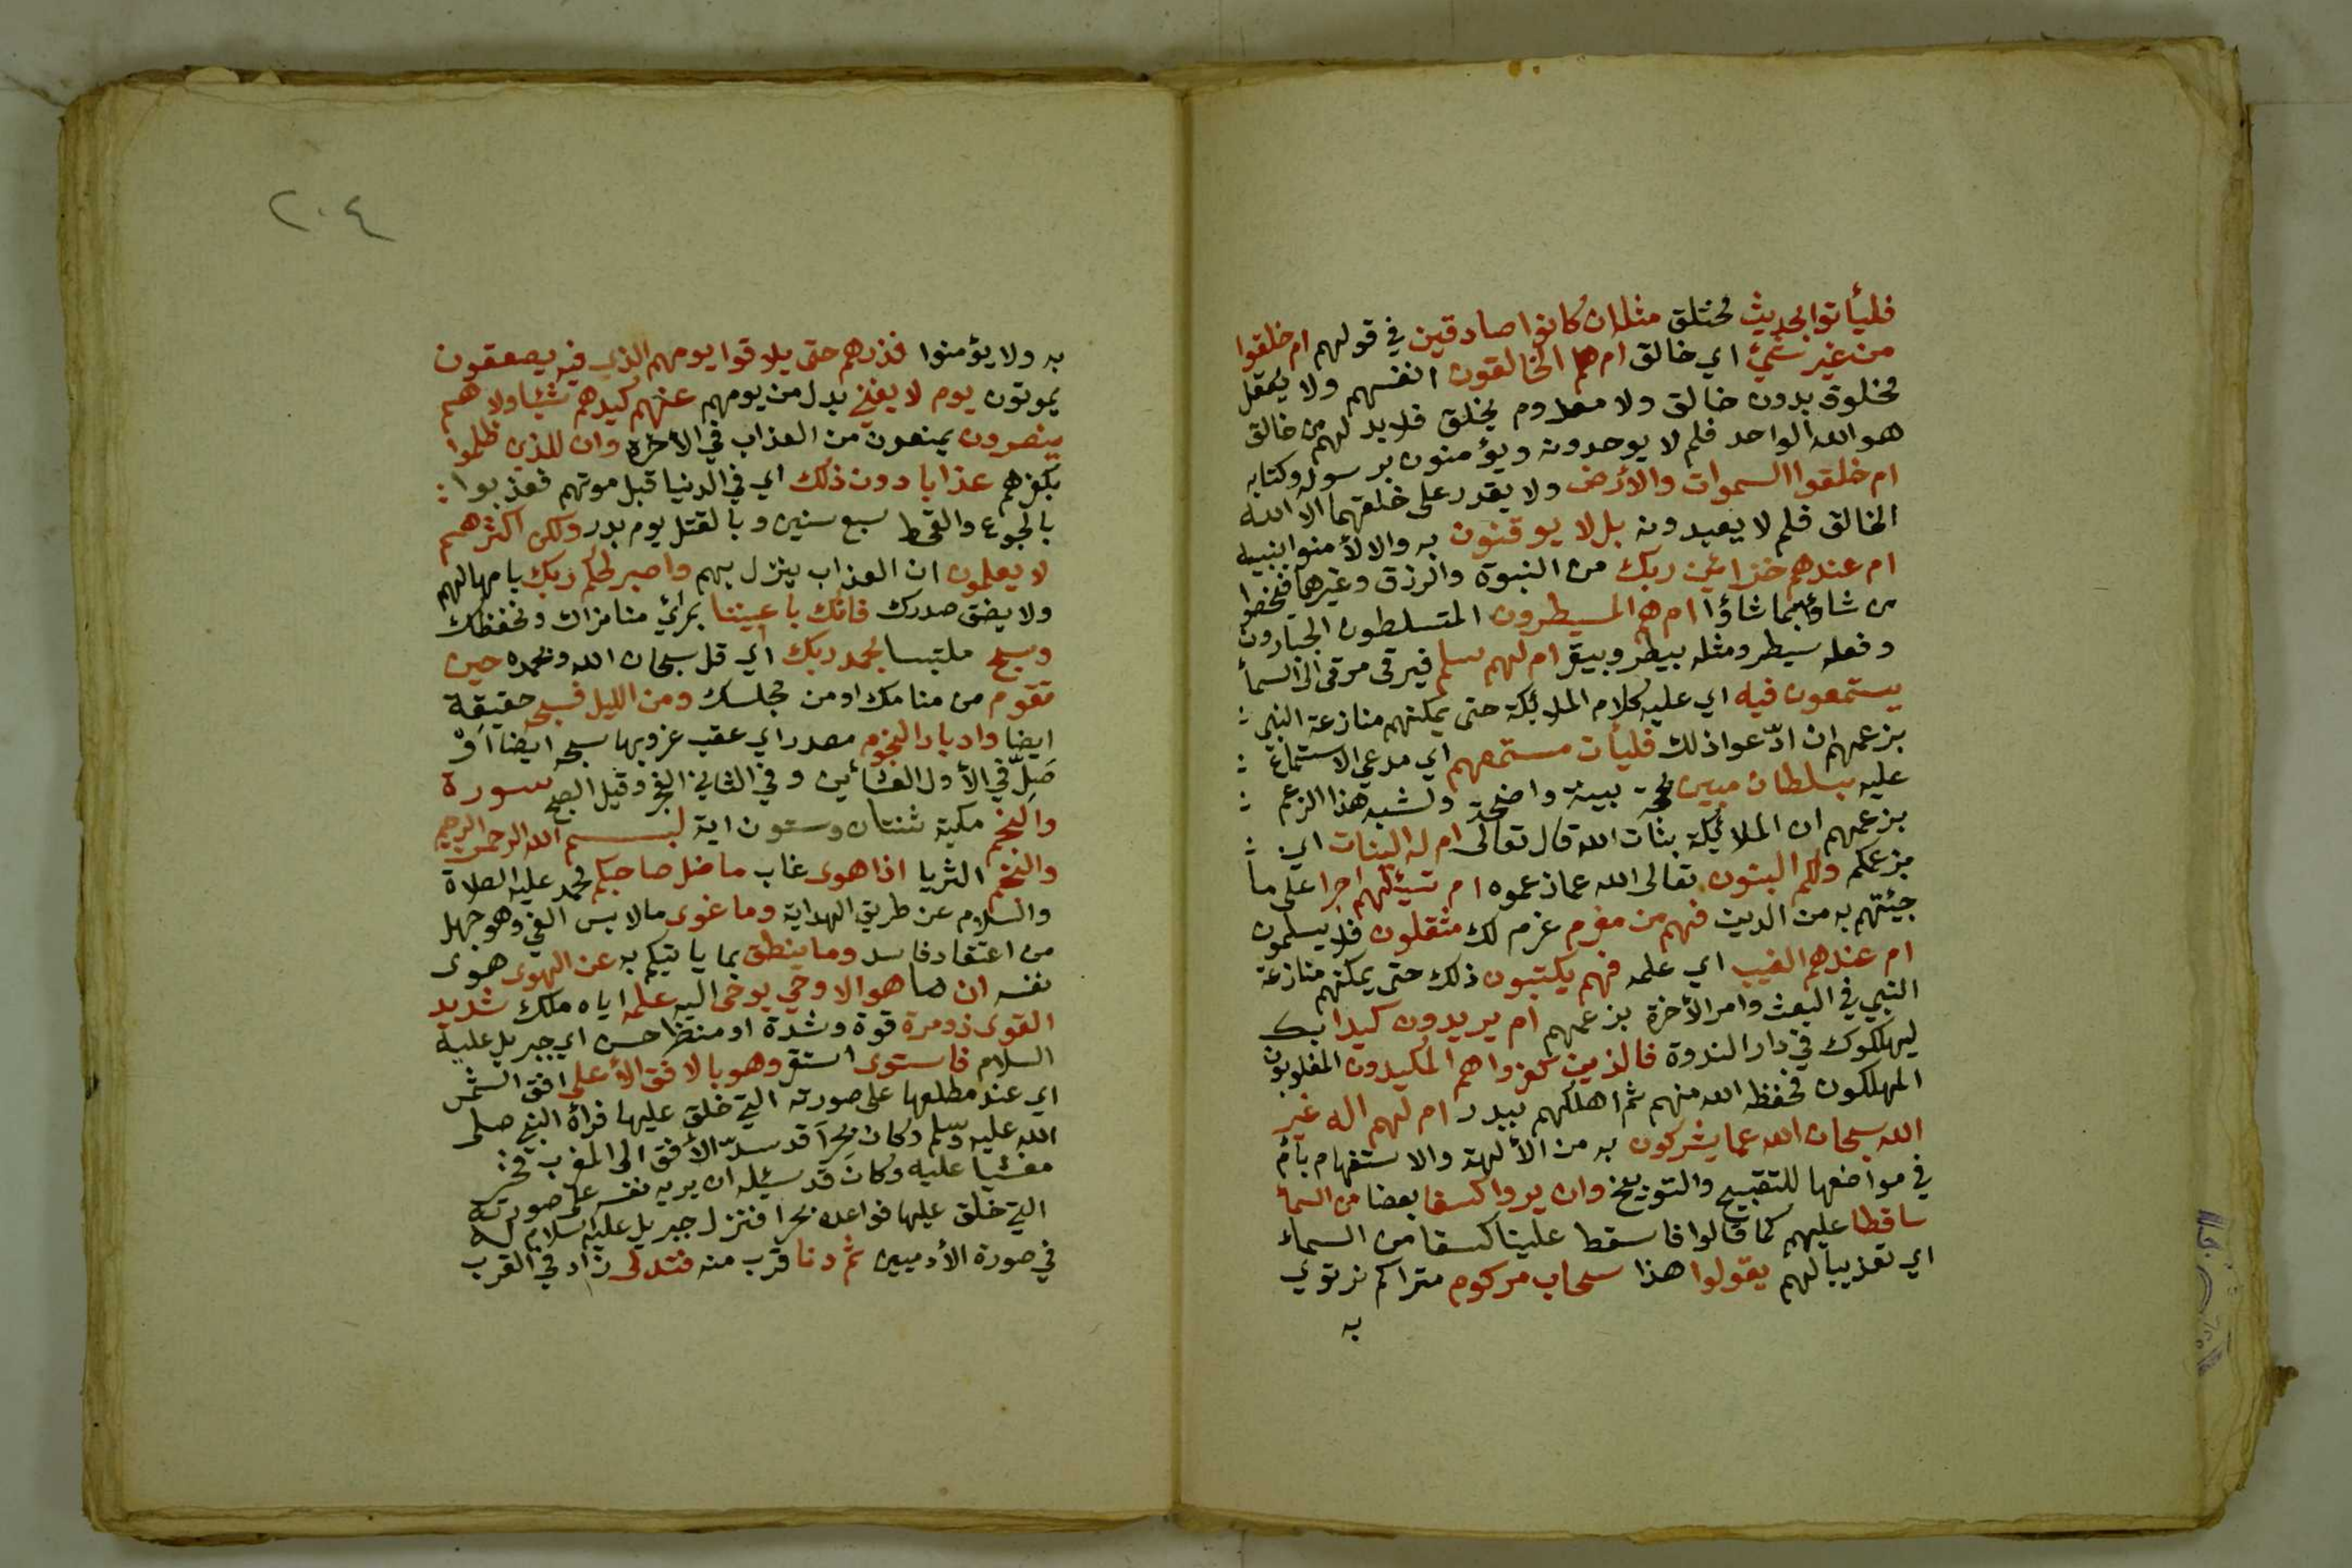 فليأتوا بحديث مختلق مثله ان كانوا صادقين في قولهم ام خلقوا
من غير شيئ اي خالق ام هم الخالقون انفسهم ولا يعقل
مخلوق بدون خالق ولا معدوم يخلق فلا بد لهم من خالق
هو الله الواحد فلم لا يوحدونه ويؤمنون برسوله وكتابه
ام خلقوا السموات والأرض ولا يقدر على خلقهما الا الله
الخالق فلم لا يعبدونه بل لا يوقنون به والا لأمنوا بنبيه
ام عندهم خزائن ربك من النبوة والرزق وغيرهما فيخصوا
من شاؤا بما شاؤا ام هم المسيطرون المتسلطون الجبارون
وفعله سيطر ومثله بيطر وبيقر ام لهم سلم فيرقى مرقى الى السمأ
يستمعون فيه اي عليه كلام الملائكة حتى يمكنهم منازعة النبي :
بزعمهم ان ادّعوا ذلك فليأت مستمعهم اي مدعي الاستماع :
عليه بسلطان مبين بحجة بينة واضحة ولشبه هذا الزعم :
بزعمهم ان الملائكة بنات الله قال تعالى ام له البنات اي :
بزعمكم ولكم البنون تعالى الله عما زعموه ام تسئلهم اجرا على ما
جيئتهم به من الدين فهم من مغرم غرم لك مثقلون فلا يسلمون
ام عندهم الغيب اي علمه فهم يكتبون ذلك حتى يمكنهم منازعة
النبي في البعث وامر الأخرة بزعمهم ام يريدون كيدا بك
ليهلكوك في دار الندوة فالذين كفروا هم المكيدون المغلوبون
المهلكون فحفظه الله منهم ثم اهلكهم ببدر ام لهم اله غير
الله سبحان الله عما يشركون به من الألهة والاستفهام بأم
في مواضعها للتقبيح والتوبيخ وان يروا كسفا بعضا من السمأ
ساقطا عليهم كما قالوا فاسقط علينا كسفا من السماء
اي تعذيبا لهم يقولوا هذا سحاب مركوم متراكم نرتوي
به
٢٠٤
به ولا يؤمنوا فذرهم حتى يلاقوا يومهم الذي فيه يصعقون
يموتون يوم لا يغني بدل من يومهم عنهم كيدهم شيئا ولا هم
ينصرون يمنعون من العذاب في الأخرة وان للذين ظلموا
بكفرهم عذابا دون ذلك اي في الدنيا قبل موتهم فعذبوا :
بالجوع والقحط سبع سنين وبالقتل يوم بدر ولكن اكثرهم
لا يعلمون ان العذاب ينزل بهم واصبر لحكم ربك بامهالهم
ولا يضق صدرك فانك باعيننا بمرائ منا نراك ونحفظك
وسبح ملتبسا بحمد ربك اي قل سبحان الله وبحمده حين
تقوم من منامك او من مجلسك ومن الليل فسبحه حقيقة
ايضا وادبار النجوم مصدر اي عقب غروبها سبحه ايضا اَوْ
صَلِّ في الأول العشائين وفي الثاني الفجر وقيل الصبح سورة
والنجم مكية ثنتان وستون اية لبسم الله الرحمن الرحيم
والنجم الثريا اذا هوى غاب ما ضل صاحبكم محمد عليه الصلاة
والسلام عن طريق الهداية وما غوى ما لابس الغي وهو جهل
من اعتقاد فاسد وما ينطق بما ياتيكم به عن الهوى هوى
نفسه ان ما هو الا وحي يوحى اليه علمه اياه ملك شديد
القوى ذو مرة قوة وشدة او منظر حسن اي جبريل عليه
السلام فاستوى استقر وهو بالافق الأعلى افق الشمس
اي عند مطلعها على صورته التي خلق عليها فرأه النبي صلى
الله عليه وسلم وكان بحرآ قد سدّ الأفق الى المغرب فخر :
مغشيا عليه وكان قد سئله ان يريه نفسه على صورته
التي خلق عليها فواعده بحرا فنزل جبريل عليه السلام له
في صورة الأدميين ثم دنا قرب منه فتدلى زاد في القرب